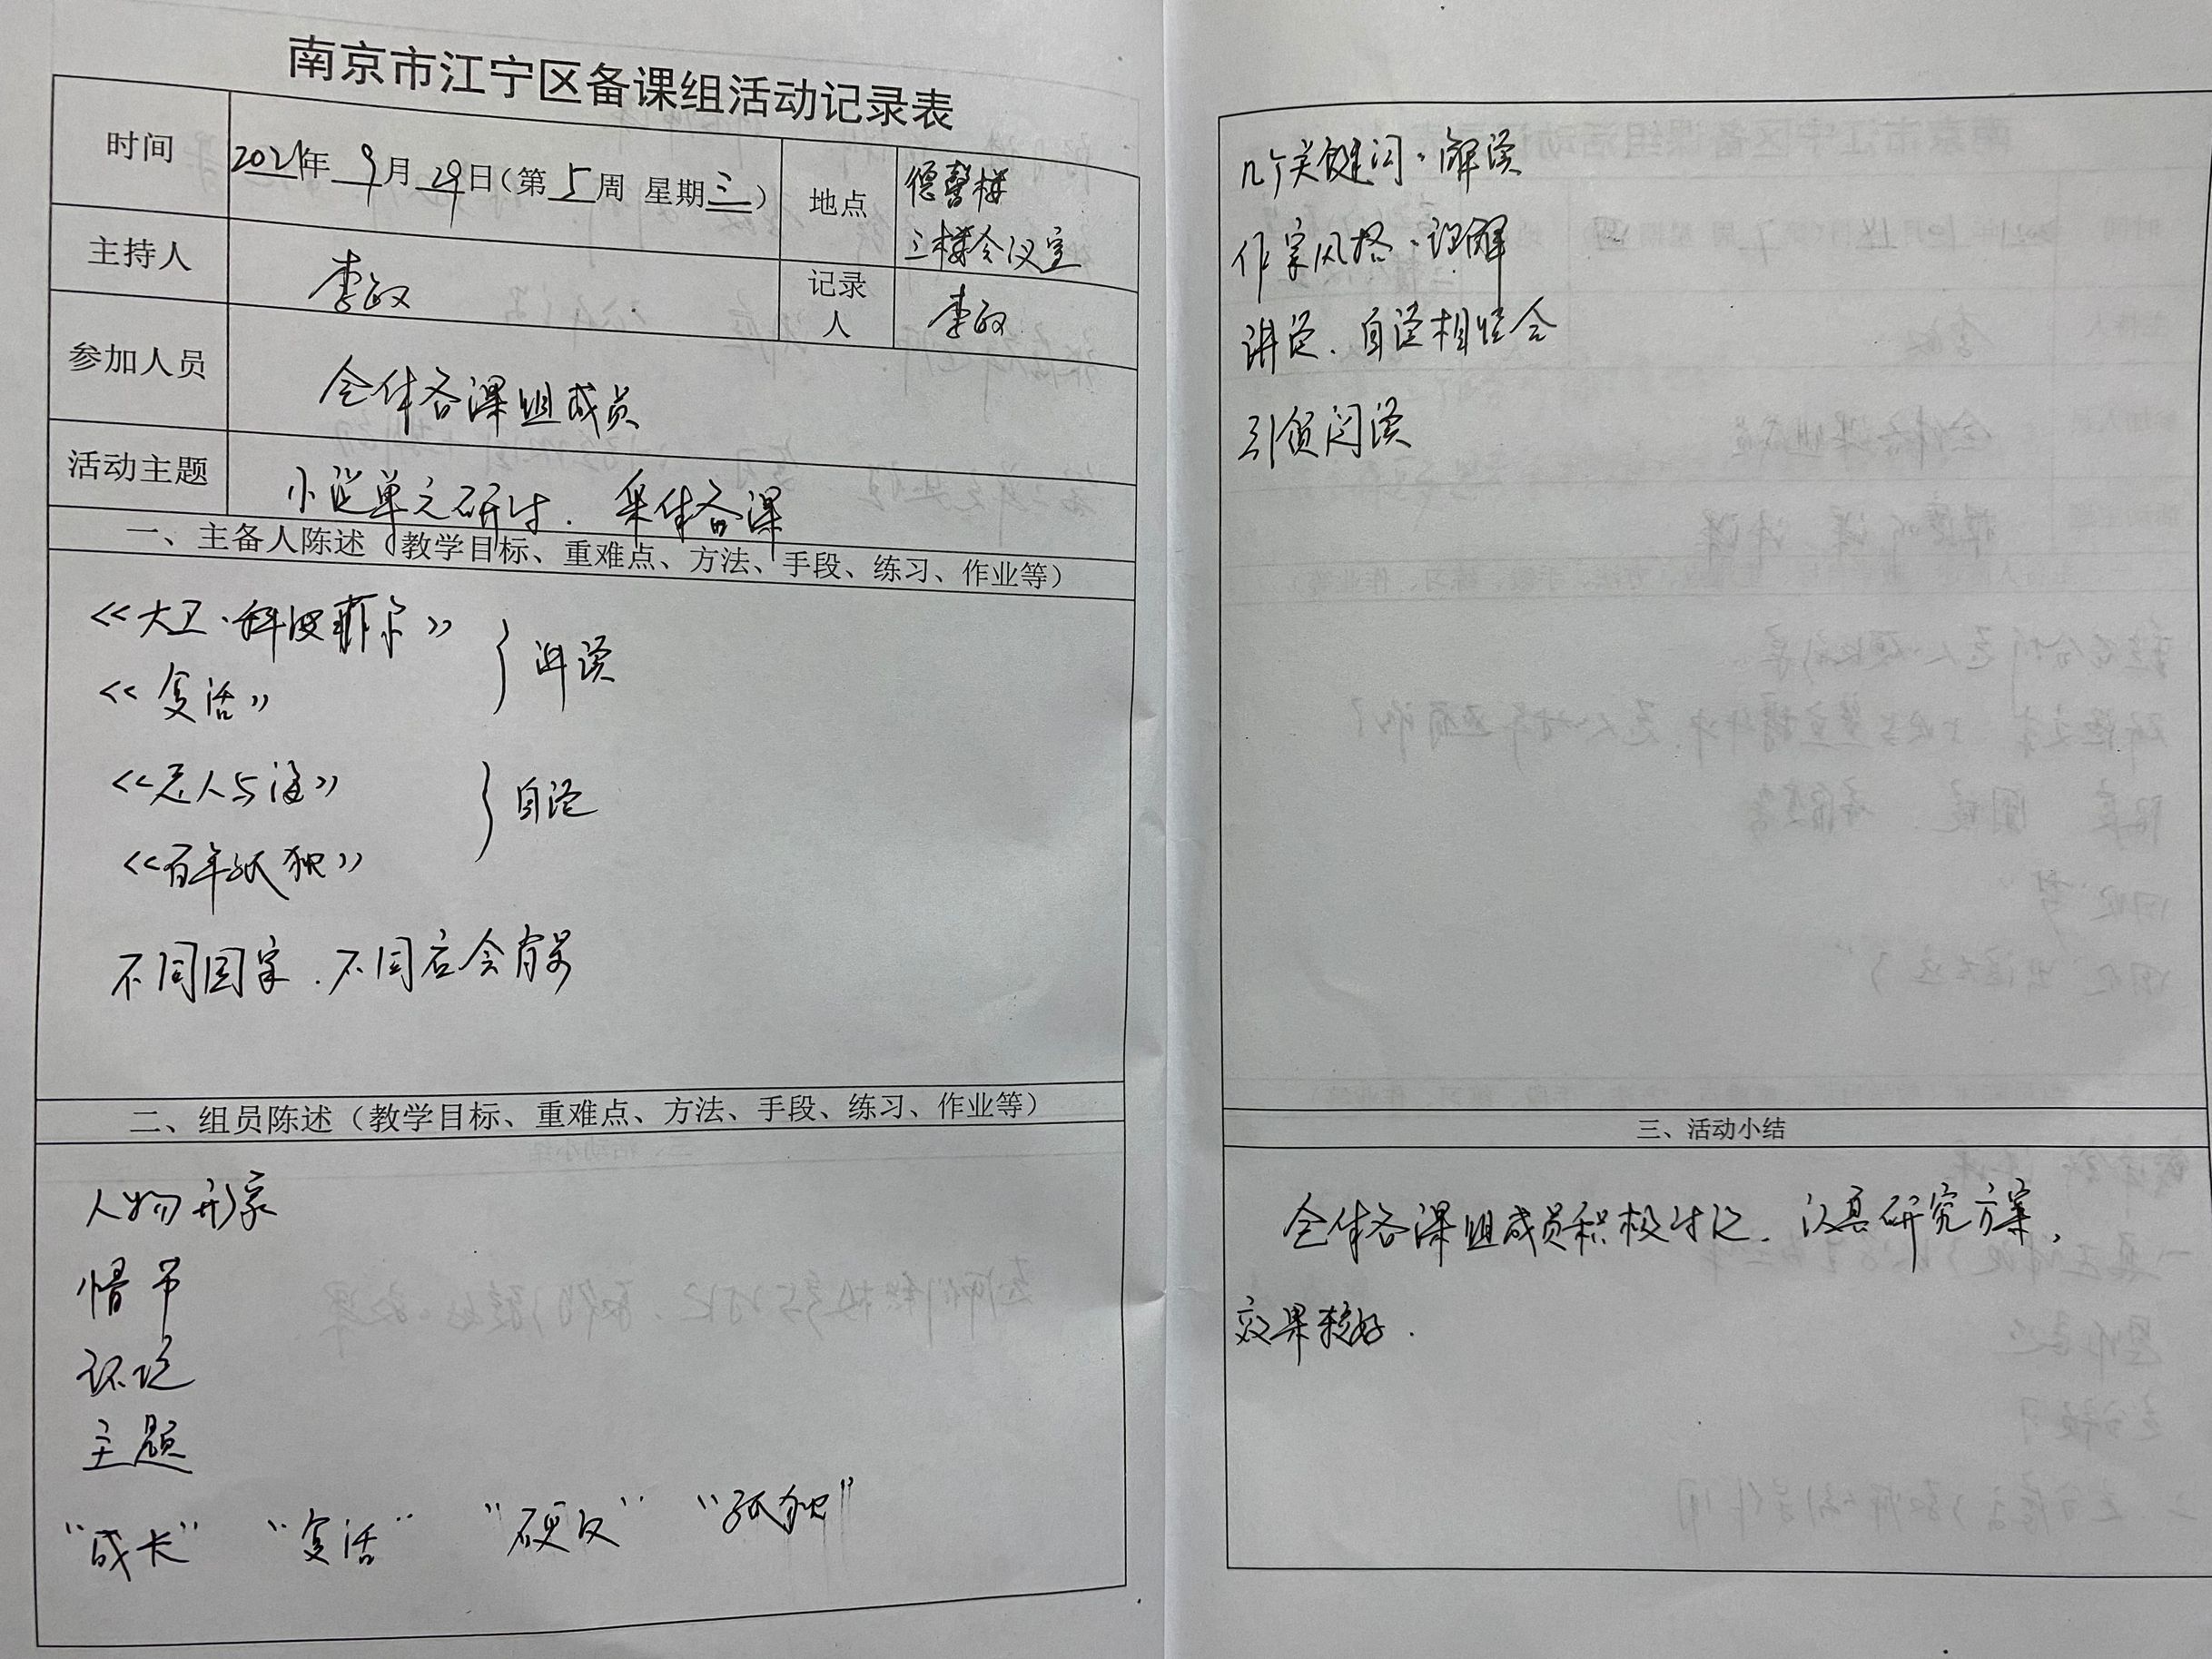 南京市江宁区备课组活动记录表
时间
2021年 9月 29日(第 5周 星期三)
地点
德馨楼
三楼会议室
主持人
李敏
记录人
李敏
参加人员
全体备课组成员
活动主题
小说单元研讨. 集体备课
一、主备人陈述(教学目标、重难点、方法、手段、练习、作业等)
《大卫·科波菲尔》
《复活》
} 讲读
《老人与海》
《百年孤独》
} 自读
不同国家.不同社会背景
二、组员陈述(教学目标、重难点、方法、手段、练习、作业等)
人物形象
情节
环境
主题
"成长" "复活" "硬汉" "孤独"
几个关键词、解读
作家风格、理解
讲读、自读相结合
引领阅读
三、活动小结
全体备课组成员积极讨论.认真研究方案,
效果较好.